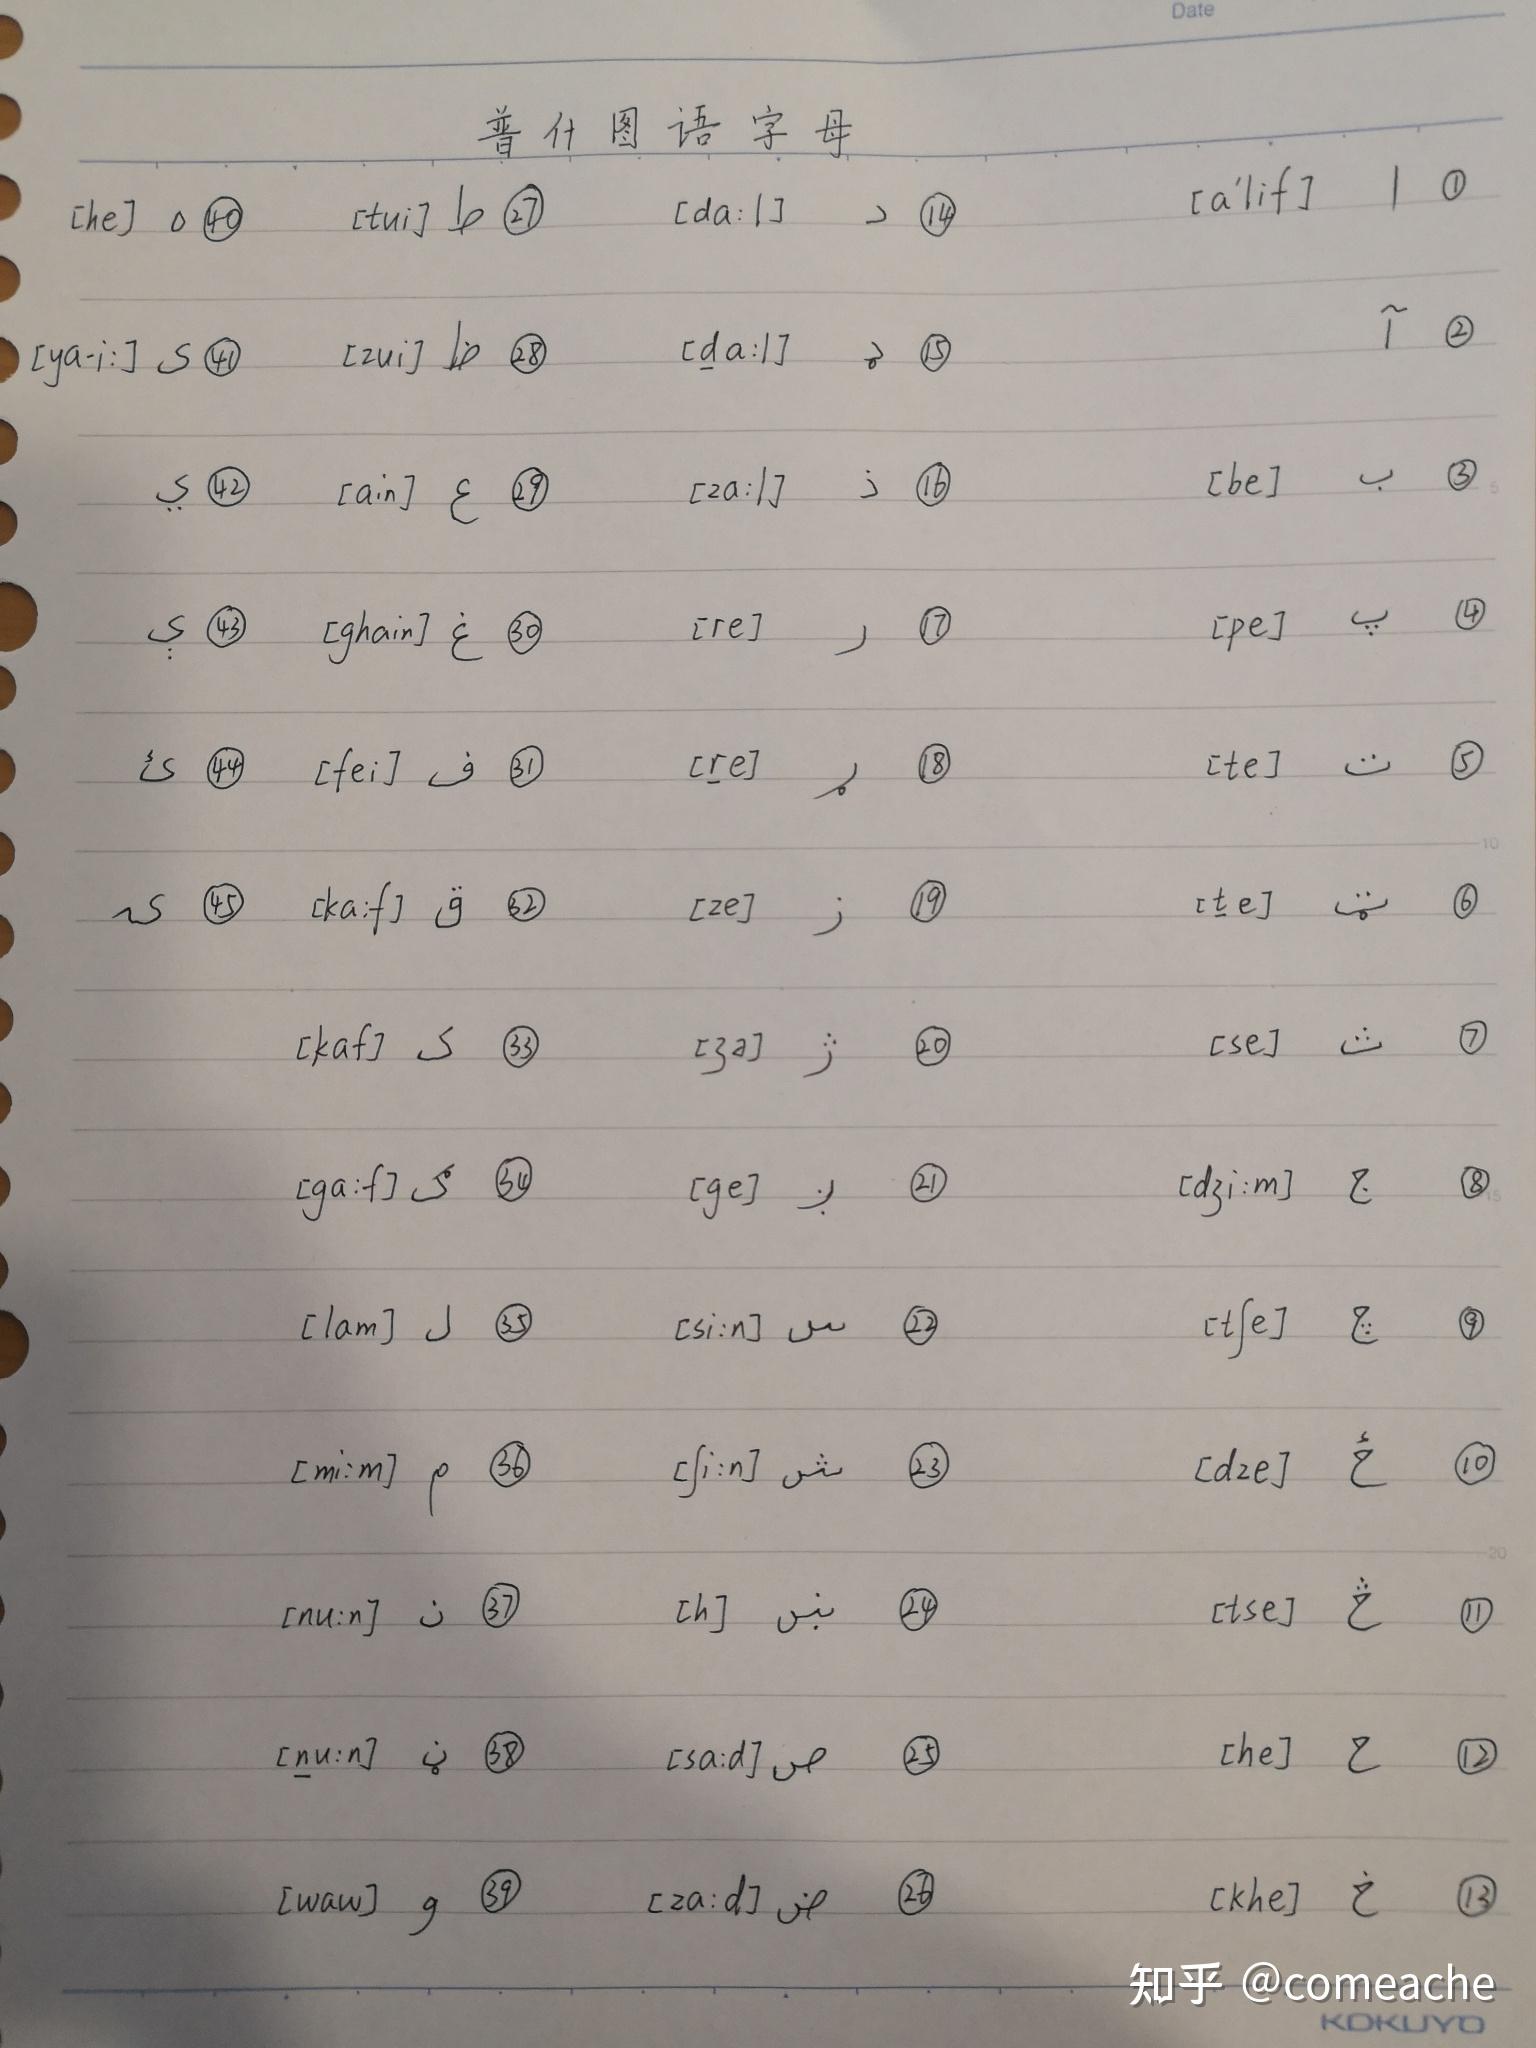 Date
普什图语字母
① ا [a'lif]
② آ
③ ب [be]
④ پ [pe]
⑤ ت [te]
⑥ ټ [ṯe]
⑦ ث [se]
⑧ ج [dʒi:m]
⑨ چ [tʃe]
⑩ ځ [dze]
⑪ څ [tse]
⑫ ح [he]
⑬ خ [khe]
⑭ د [da:l]
⑮ ډ [ḏa:l]
⑯ ذ [za:l]
⑰ ر [re]
⑱ ړ [ṟe]
⑲ ز [ze]
⑳ ژ [ʒə]
㉑ ږ [ge]
㉒ س [si:n]
㉓ ش [ʃi:n]
㉔ ښ [h]
㉕ ص [sa:d]
㉖ ض [za:d]
㉗ ط [tui]
㉘ ظ [zui]
㉙ ع [ain]
㉚ غ [ghain]
㉛ ف [fei]
㉜ ق [ka:f]
㉝ ک [kaf]
㉞ ګ [ga:f]
㉟ ل [lam]
㊱ م [mi:m]
㊲ ن [nu:n]
㊳ ڼ [ṉu:n]
㊴ و [waw]
㊵ ه [he]
㊶ ی [ya-i:]
㊷ ي
㊸ ې
㊹ ئ
㊺ ۍ
5
10
15
20
知乎 @comeache
KOKUYO